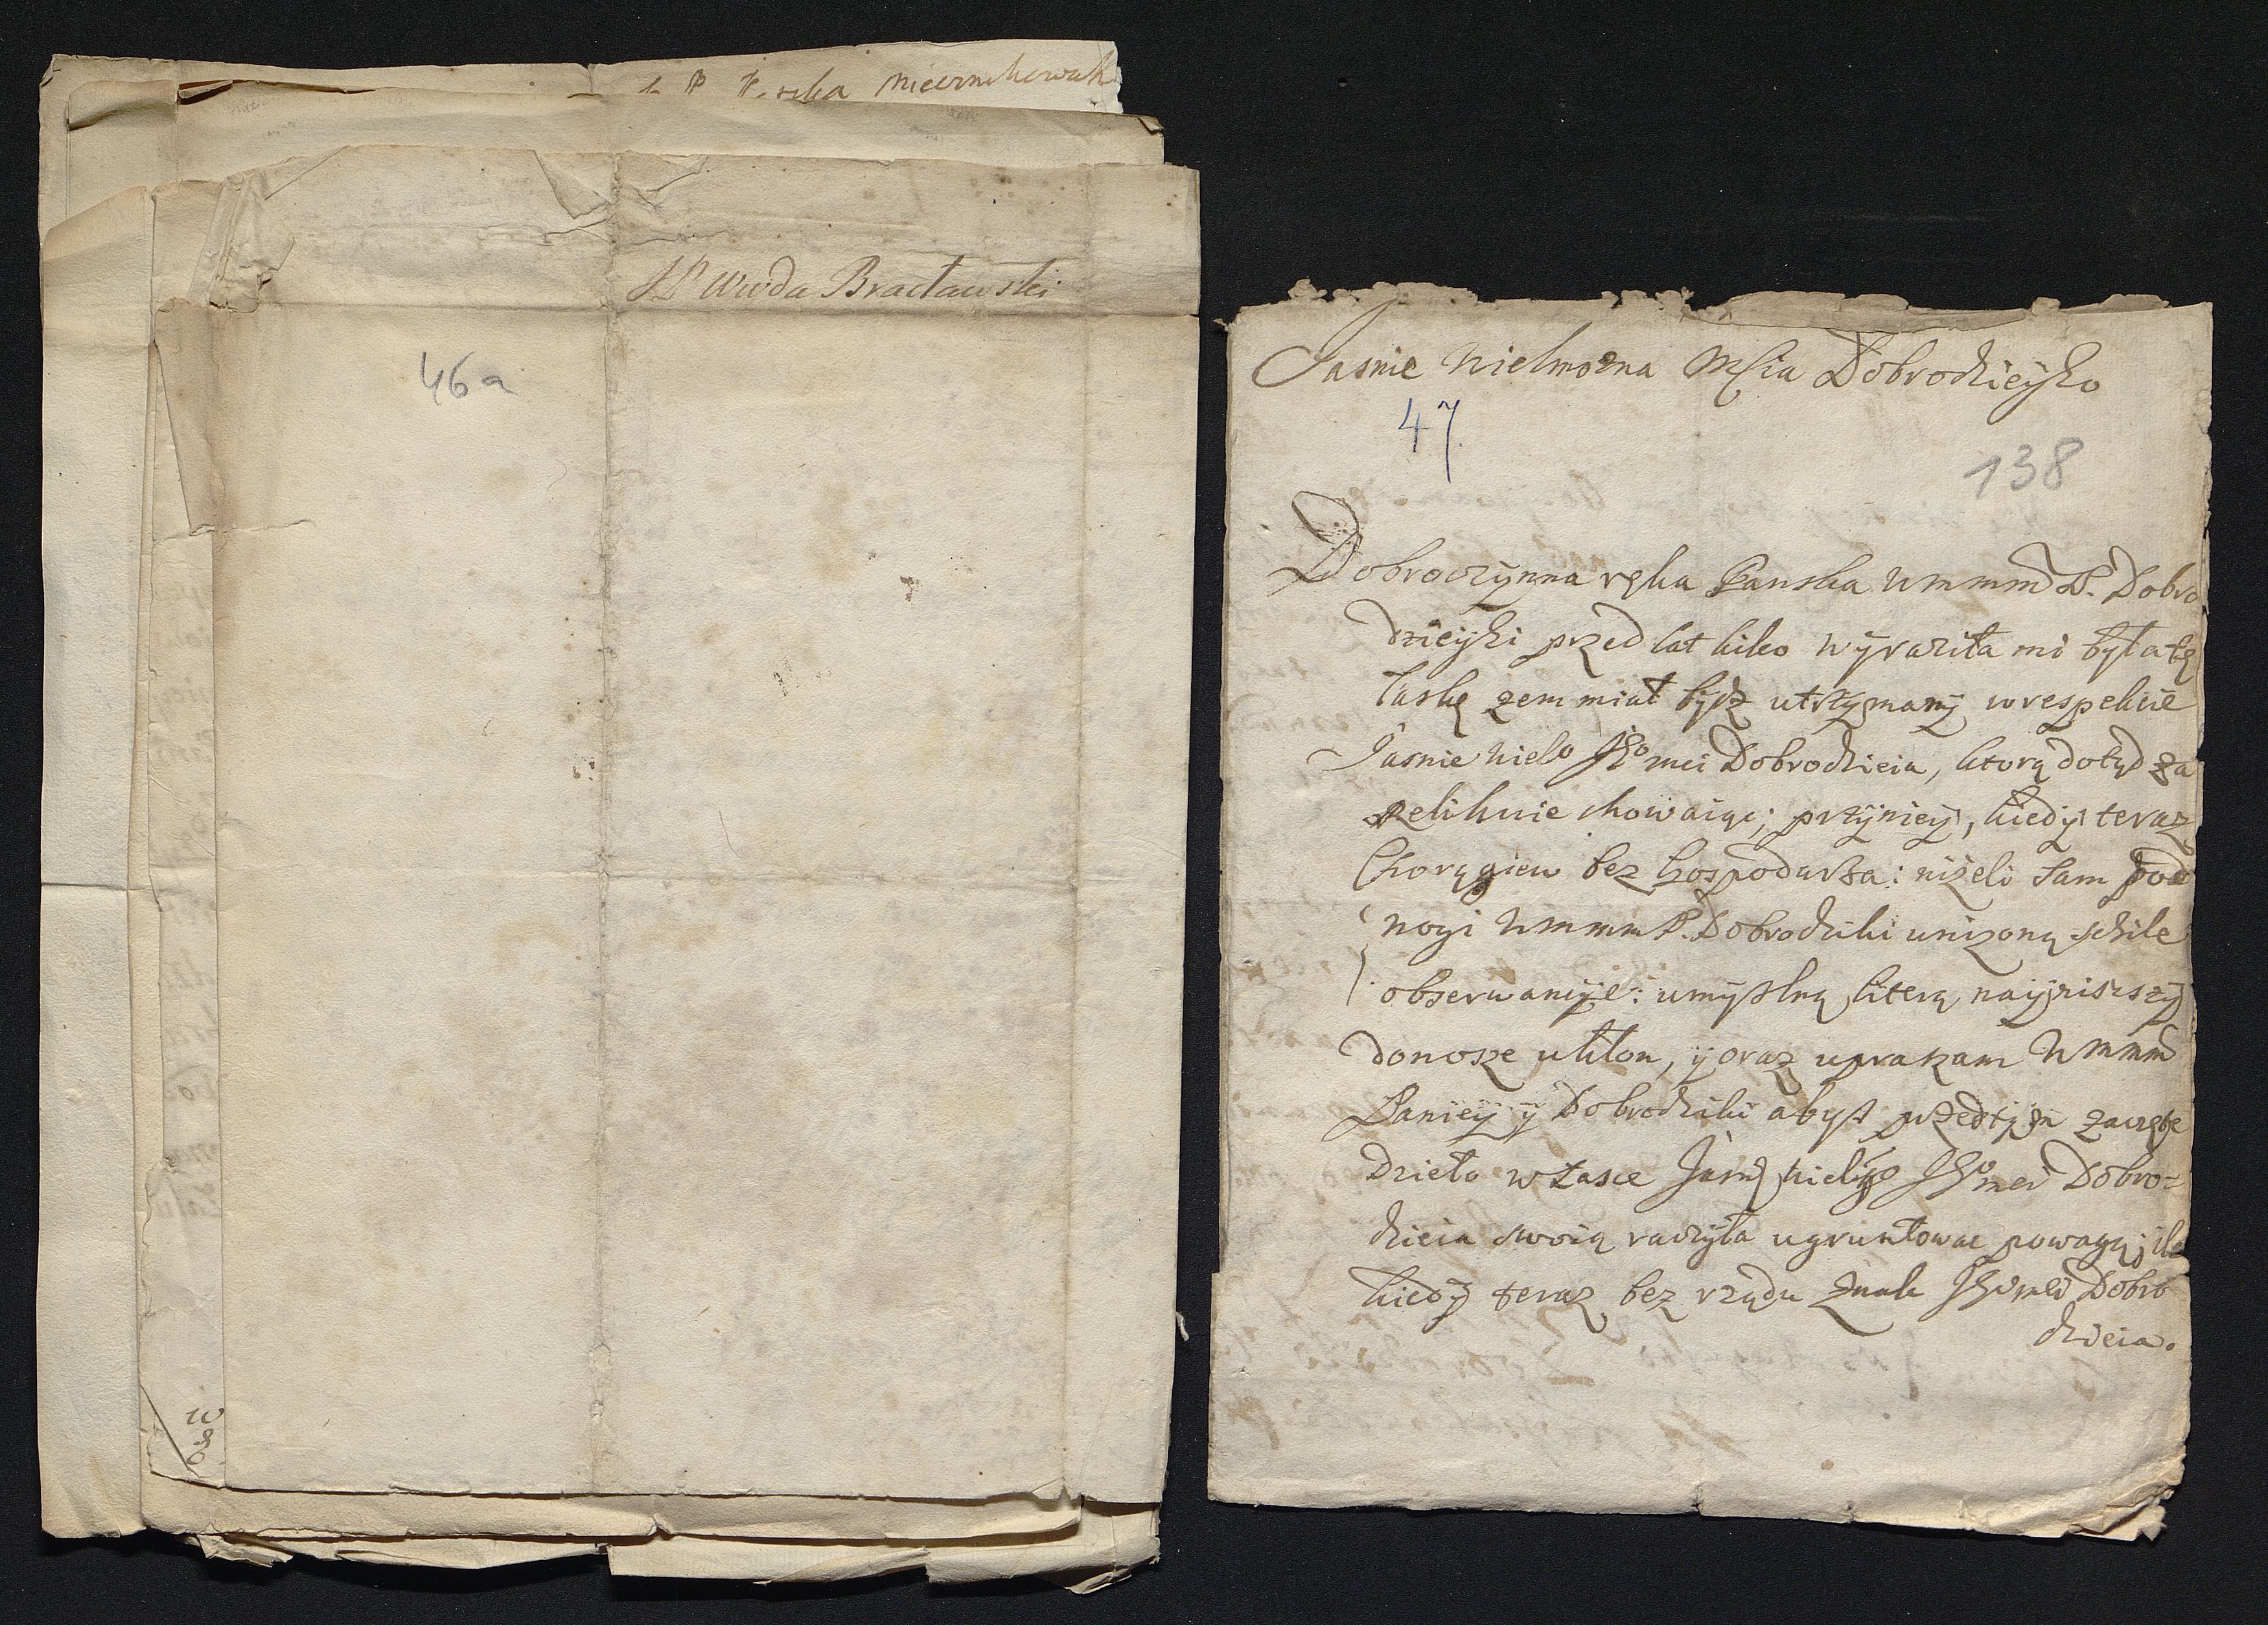 JP Wwda Bracławski
46a
Jasnie Wielmozna Mścia Dobrodzieyko
47
138
Dobroczynna ręka Panska Wmmm P. Dobro
dzieyki przed lat kilko wyraziła mi była tę
łaskę zem miał bydz utrzymany w respekcie
Jasnie Wielo Jgo mci Dobrodzieia, ktorą dotąd za
Relikuie chowaiąc; przyniey, kiedy teraz
Chorągiew bez hospodarza: niżeli sam pod
nogi Wmmm P. Dobrodziki unizoną schile
obserwancyje: umyslną literą nayniższy
donosze ukłon, y oraz upraszam Wmmm
Paniey y Dobrodziki abyś przedtym zaczęte
dzieło w łasce Jasnie Jgo mci Dobro-
dzieia swoią raczyła ugruntowac powagą; ile
kiedy teraz bez rządu znak Jgo mci Dobro
dzieia.